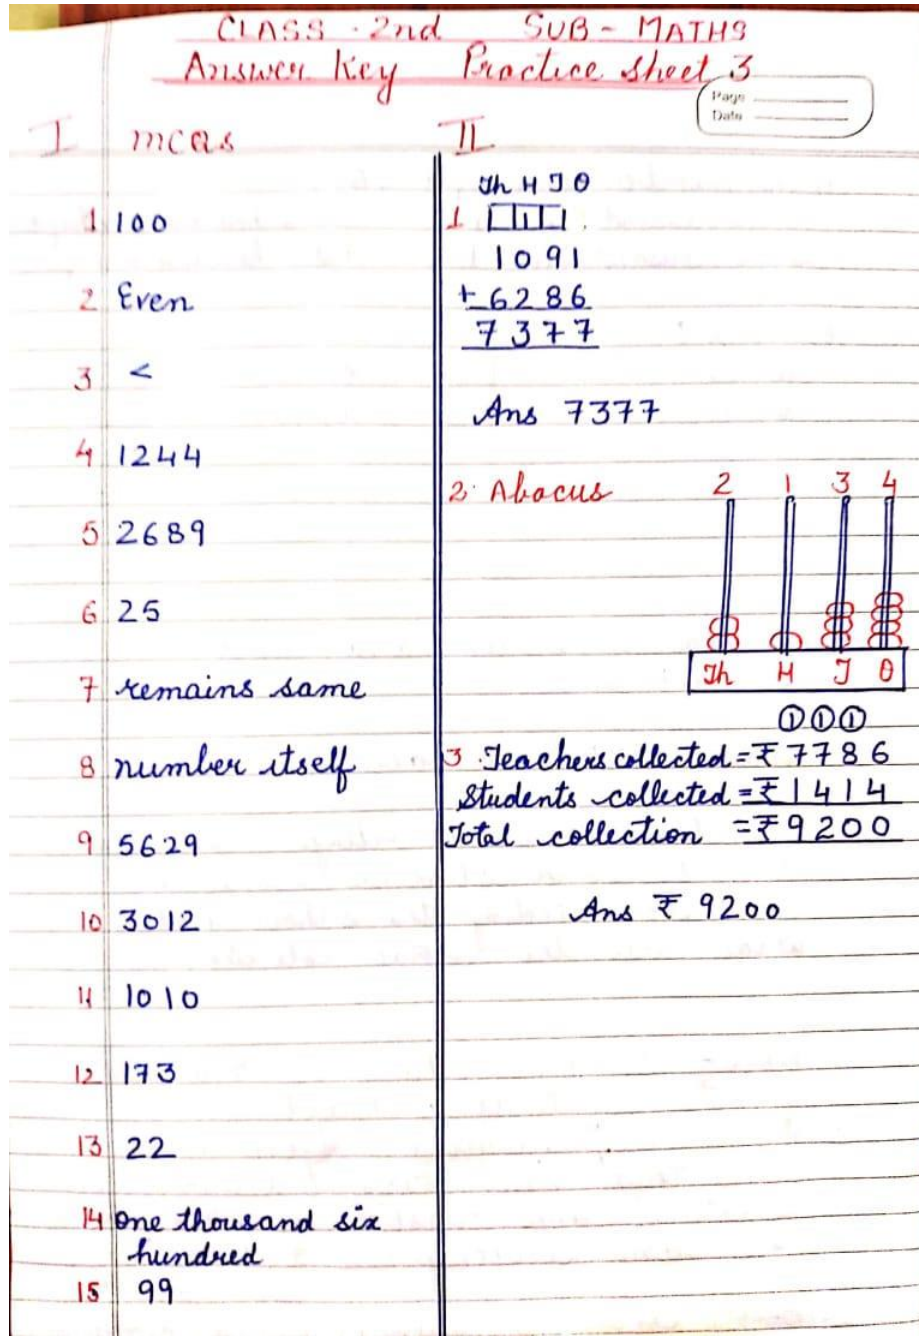 CLASS - 2nd SUB - MATHS
Answer Key Practice sheet 3
Page
Date
I mcqs
1 100
2 Even
3 <
4 1244
5 2689
6 25
7 remains same
8 number itself
9 5629
10 3012
11 1010
12 173
13 22
14 one thousand six
hundred
15 99
II
Th H T O
1
1091
+6286
7377
Ans 7377
2. Abacus
2 1 3 4
Th H T O
1 1 1
3. Teachers collected = ₹ 7786
Students collected = ₹ 1414
Total collection = ₹ 9200
Ans ₹ 9200